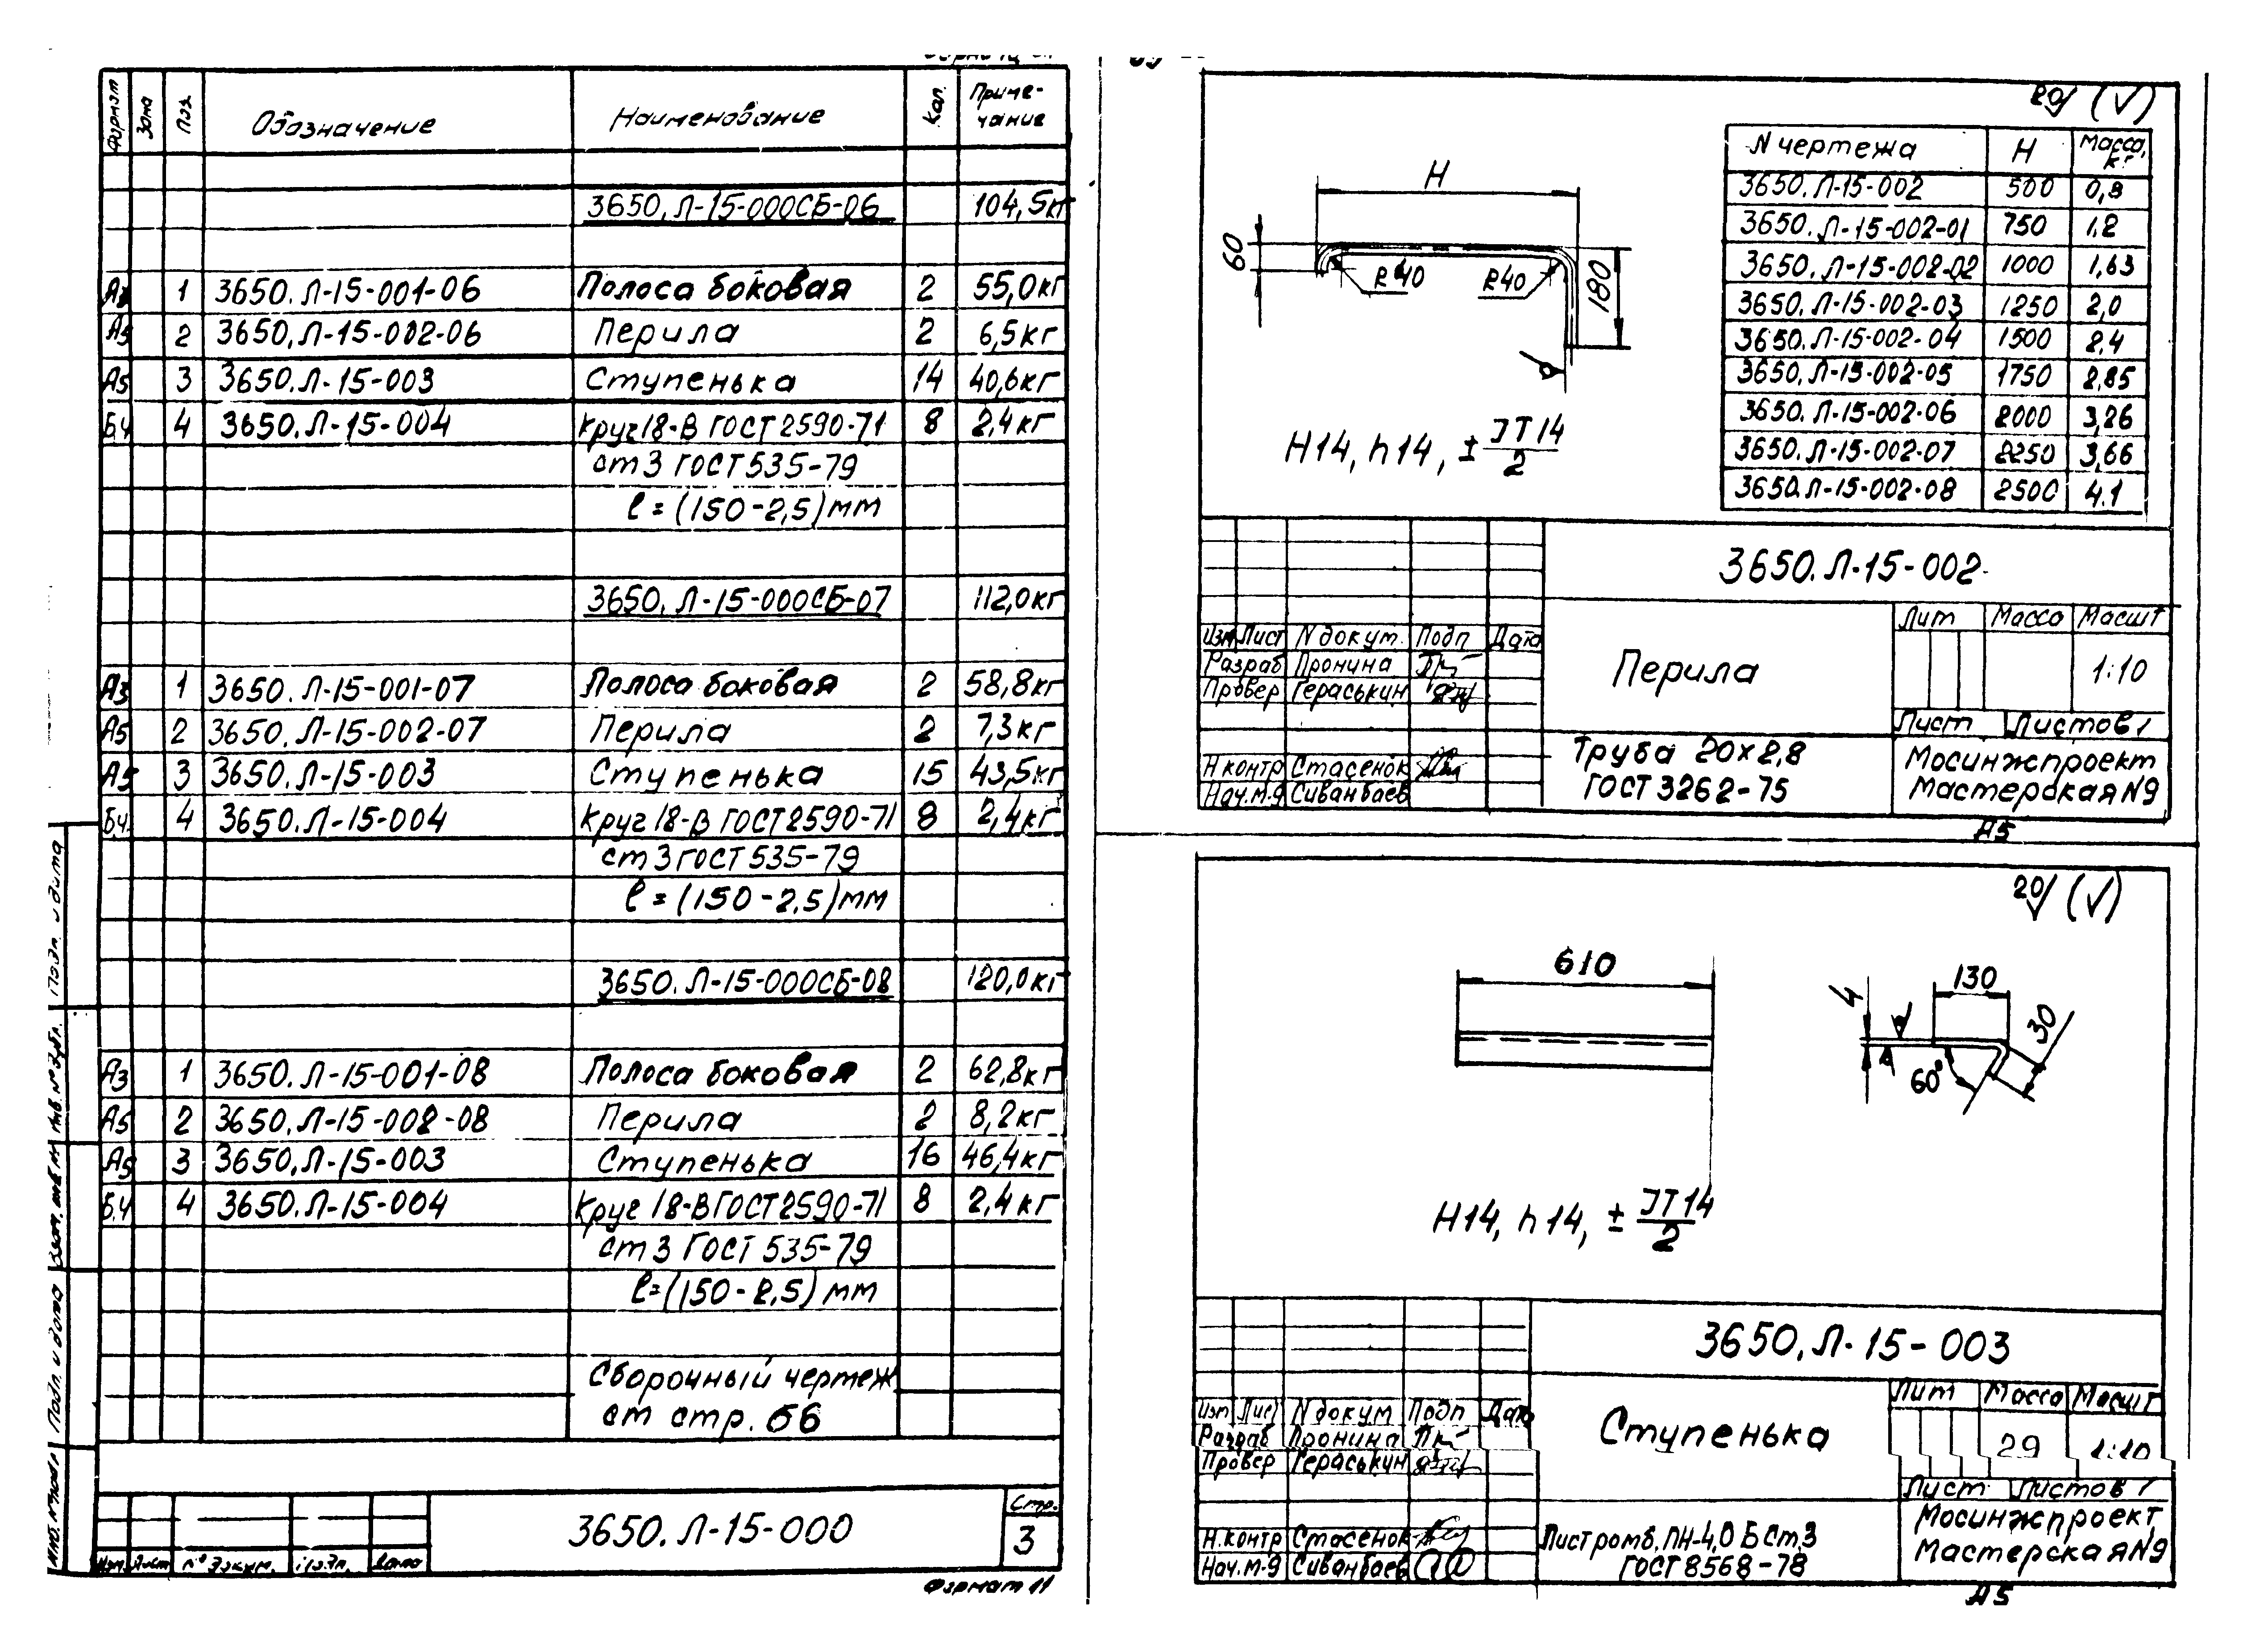 Формат Зона Поз. Обозначение Наименование Кол. Приме-
чание
3650.Л-15-000СБ-06 104,5кг
А3 1 3650.Л-15-001-06 Полоса боковая 2 55,0кг
А5 2 3650.Л-15-002-06 Перила 2 6,5кг
А5 3 3650.Л-15-003 Ступенька 14 40,6кг
Б.Ч 4 3650.Л-15-004 Круг 18-В ГОСТ 2590-71 8 2,4кг
ст3 ГОСТ 535-79
ℓ=(150-2,5)мм
3650.Л-15-000СБ-07 112,0кг
А3 1 3650.Л-15-001-07 Полоса боковая 2 58,8кг
А5 2 3650.Л-15-002-07 Перила 2 7,3кг
А5 3 3650.Л-15-003 Ступенька 15 43,5кг
Б.Ч. 4 3650.Л-15-004 Круг 18-В ГОСТ 2590-71 8 2,4кг
ст3 ГОСТ 535-79
ℓ=(150-2,5)мм
3650.Л-15-000СБ-08 120,0кг
А3 1 3650.Л-15-001-08 Полоса боковая 2 62,8кг
А5 2 3650.Л-15-002-08 Перила 2 8,2кг
А5 3 3650.Л-15-003 Ступенька 16 46,4кг
Б.Ч 4 3650.Л-15-004 Круг 18-В ГОСТ 2590-71 8 2,4кг
ст3 ГОСТ 535-79
ℓ=(150-2,5)мм
Сборочный чертеж
см стр. 66
Инв. № подл Подп. и дата Взам. инв. № Инв. № дубл. Подп. и дата
3650.Л-15-000
Стр.
3
Изм. Лист № докум. Подп. Дата
Формат 11
20 (√)
N чертежа H Масса, кг
3650.Л-15-002 500 0,8
3650.Л-15-002-01 750 1,2
3650.Л-15-002-02 1000 1,63
3650.Л-15-002-03 1250 2,0
3650.Л-15-002-04 1500 2,4
3650.Л-15-002-05 1750 2,85
3650.Л-15-002-06 2000 3,26
3650.Л-15-002-07 2250 3,66
3650.Л-15-002-08 2500 4.1
H
60
R40
R40
180
H14, h14, ± JT14/2
3650.Л-15-002
Лит Масса Масшт
Изм Лист N докум. Подп Дата
Разраб Пронина
Перила
1:10
Провер Гераськин
Лист Листов 1
Труба 20х2,8
ГОСТ 3262-75
Н контр Стасенок
Нач.м-9 Сиванбаев
Мосинжпроект
Мастерская N9
А5
20 (√)
610
130
4
30
60°
H14, h14, ± JT14/2
3650.Л-15-003
Лит Масса Масшт
Изм Лист N докум Подп Дата
Разраб Пронина
Ступенька
29 1:10
Провер Гераськин
Лист Листов 1
Н.контр Стасенок
Нач.м-9 Сиванбаев
Лист ромб.ПН-4,0 БСт.3
ГОСТ 8568-78
Мосинжпроект
Мастерская N9
А5